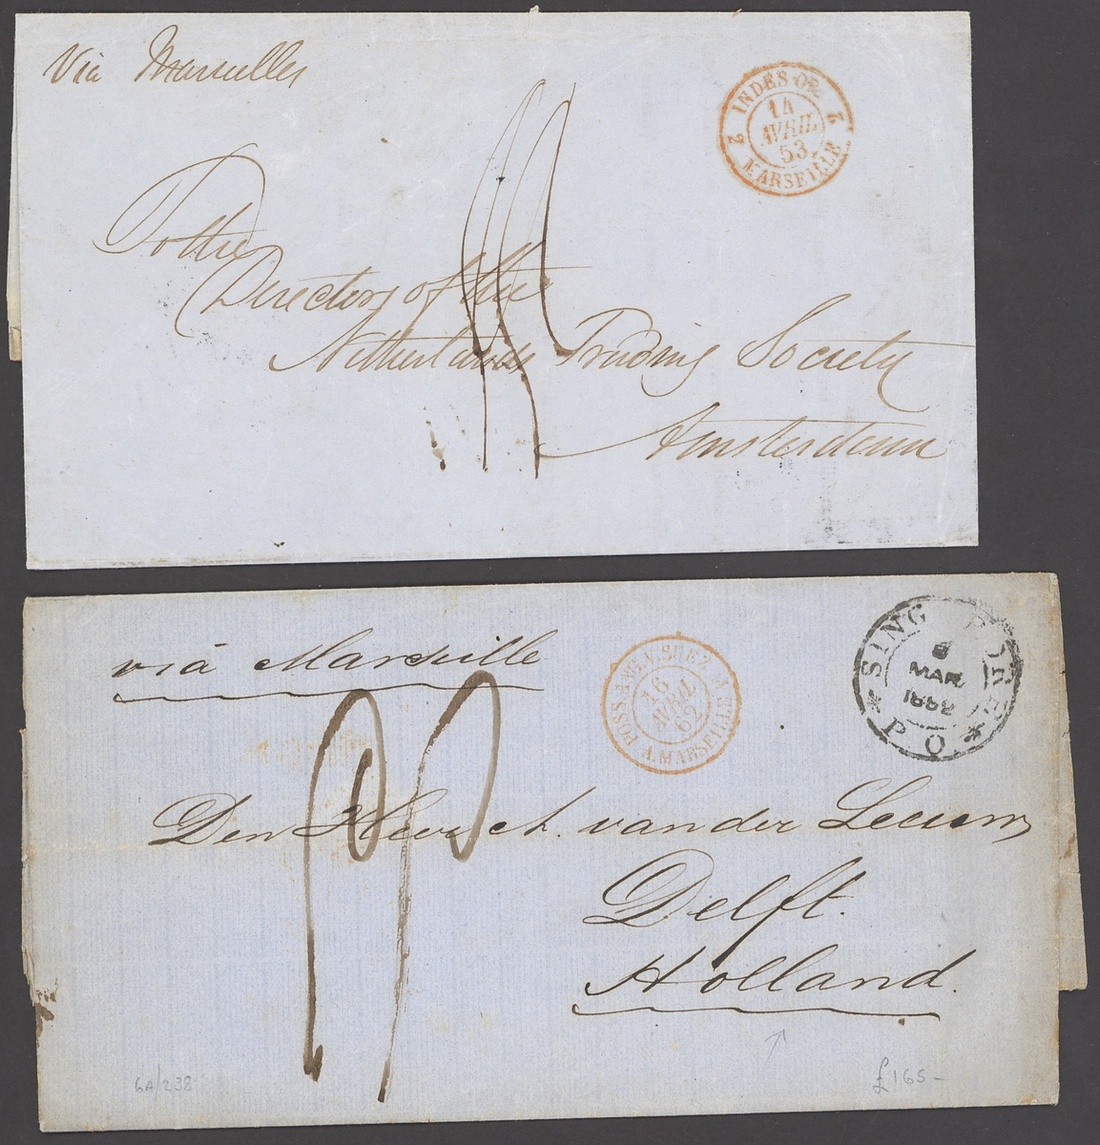 Via Marseilles
INDES OR.
2 2
14
AVRIL
53
MARSEILLE
To the
Directors of the
Netherlands Trading Society
Amsterdam
viá Marseille
POSS. ANG. V. SUEZ A.
16
AVRIL
62
A. MARSEILLE
SINGAPORE
MAR
1862
* P O *
Den Heer van der Leeuw
Delft.
Holland.
6A/238
£165-